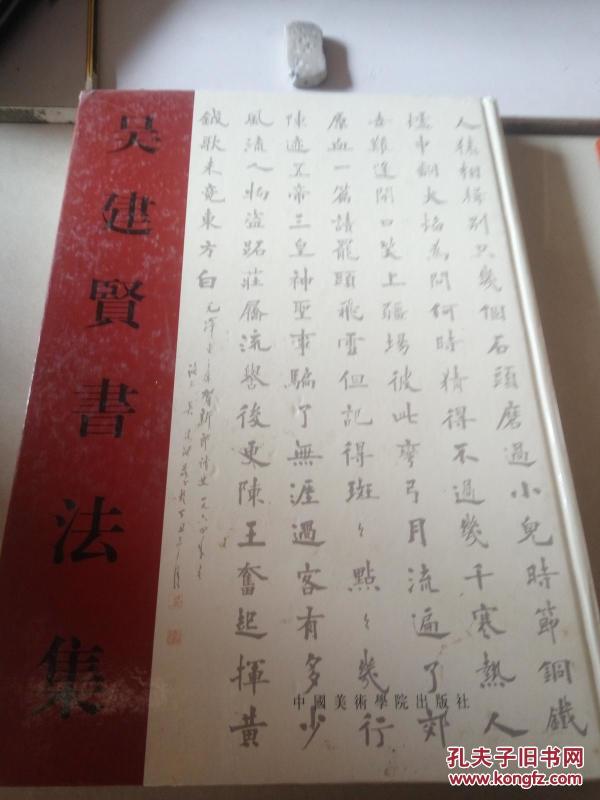 吳建賢書法集
人猿相揖別只幾個石頭磨過小兒時節銅鐵
爐中翻火焰為問何時猜得不過幾千寒熱人
世難逢開口笑上疆場彼此彎弓月流遍了郊
原血一篇讀罷頭飛雪但記得斑々點々幾行
陳迹五帝三皇神聖事騙了無涯過客有多少
風流人物盜跖莊屩流譽後更陳王奮起揮黃
鉞歌未竟東方白
賀新郎讀史一九六四年
中國美術學院出版社
孔夫子旧书网
www.kongfz.com